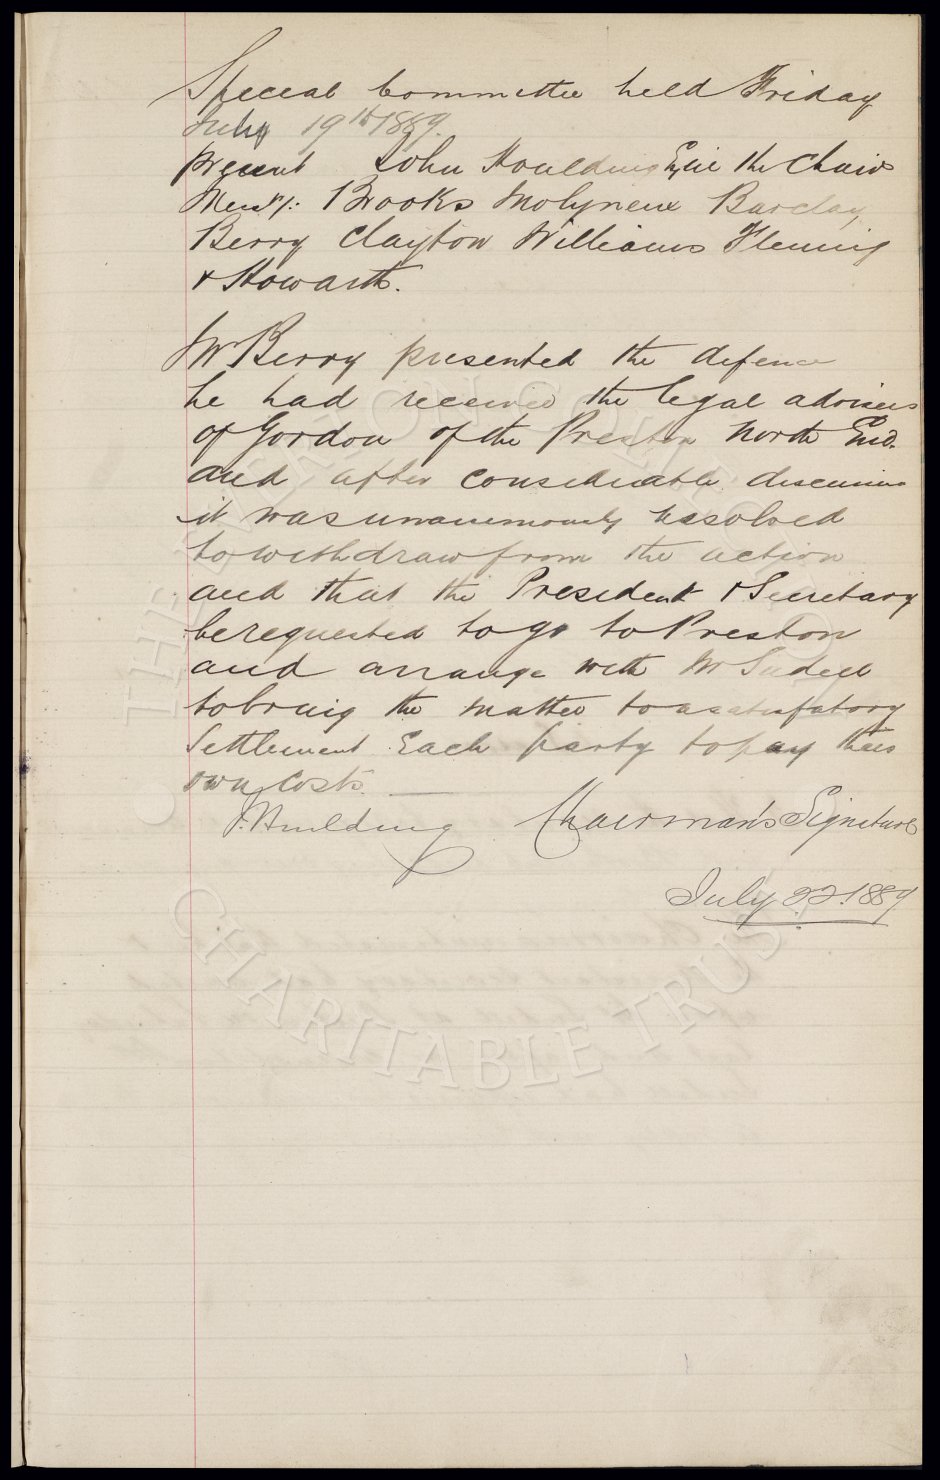 Special Committee held Friday
July 19th 1889.
present John Houlding Esq in the Chair
Messrs: Brooks Molyneux Barclay
Berry Clayton Williams Fleming
& Howarth.
Mr Berry presented the defence
he had received the legal advisers
of Gordon of the Preston North End.
and after considerable discussion
it was unanimously resolved
to withdraw from the action
and that the President & Secretary
be requested to go to Preston
and arrange with Mr Sudell
to bring the matter to a satisfatory
Settlement Each party to pay their
own Costs.
J. Houlding Chairman's Signature
July 22. 1889
THE EVERTON COLLECTION
CHARITABLE TRUST